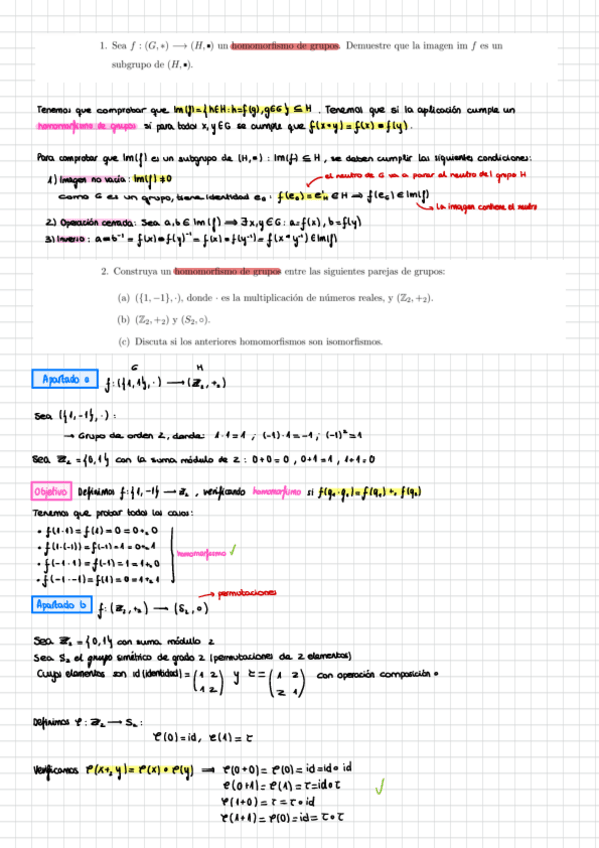 1. Sea f : (G, ∗) ⟶ (H, •) un homomorfismo de grupos. Demuestre que la imagen im f es un
subgrupo de (H, •).
Tenemos que comprobar que Im(f) = {h∈H: h=f(g), g∈G} ⊆ H . Tenemos que si la aplicación cumple un
homomorfismo de grupos si para todos x, y ∈ G se cumple que f(x*y) = f(x) • f(y).
Para comprobar que Im(f) es un subgrupo de (H, •) : Im(f) ⊆ H , se deben cumplir las siguientes condiciones:
→ el neutro de G va a parar al neutro del grupo H
1) Imagen no vacía: Im(f) ≠ ∅
Como G es un grupo, tiene identidad e_G : f(e_G) = e_H ∈ H ⟹ f(e_G) ∈ Im(f)
↳ La imagen contiene el neutro
2) Operación cerrada: Sea a, b ∈ Im(f) ⟹ ∃ x, y ∈ G : a = f(x), b = f(y)
3) Inverso: a • b⁻¹ = f(x) • f(y)⁻¹ = f(x) • f(y⁻¹) = f(x * y⁻¹) ∈ Im(f)
2. Construya un homomorfismo de grupos entre las siguientes parejas de grupos:
(a) ({1, −1}, ·), donde · es la multiplicación de números reales, y (ℤ₂, +₂).
(b) (ℤ₂, +₂) y (S₂, ∘).
(c) Discuta si los anteriores homomorfismos son isomorfismos.
G H
Apartado a f: ({1,1}, ·) ⟶ (ℤ₂, +₂)
Sea ({1, -1}, ·) :
→ Grupo de orden 2, donde: 1·1 = 1 ; (-1)·1 = -1 ; (-1)² = 1
Sea ℤ₂ = {0, 1} con la suma módulo de 2 : 0+0 = 0 , 0+1 = 1 , 1+1 = 0
Objetivo Definimos f: {1, -1} ⟶ ℤ₂ , verificando homomorfismo si f(g₁·g₂) = f(g₁) +₂ f(g₂)
Tenemos que probar todos los casos:
• f(1·1) = f(1) = 0 = 0+₂0
• f(1·(-1)) = f(-1) = 1 = 0+₂1
homomorfismo ✓
• f(-1·1) = f(-1) = 1 = 1+₂0
• f(-1·-1) = f(1) = 0 = 1+₂1
→ permutaciones
Apartado b f: (ℤ₂, +₂) ⟶ (S₂, ∘)
Sea ℤ₂ = {0, 1} con suma módulo 2
Sea S₂ el grupo simétrico de grado 2 (permutaciones de 2 elementos)
Cuyos elementos son id (identidad) = (1 2 / 1 2) y τ = (1 2 / 2 1) con operación composición ∘
Definimos φ: ℤ₂ ⟶ S₂ :
φ(0) = id, φ(1) = τ
Verificamos φ(x+₂y) = φ(x) ∘ φ(y) ⟹ φ(0+0) = φ(0) = id = id ∘ id
φ(0+1) = φ(1) = τ = id ∘ τ
✓
φ(1+0) = τ = τ ∘ id
φ(1+1) = φ(0) = id = τ ∘ τ